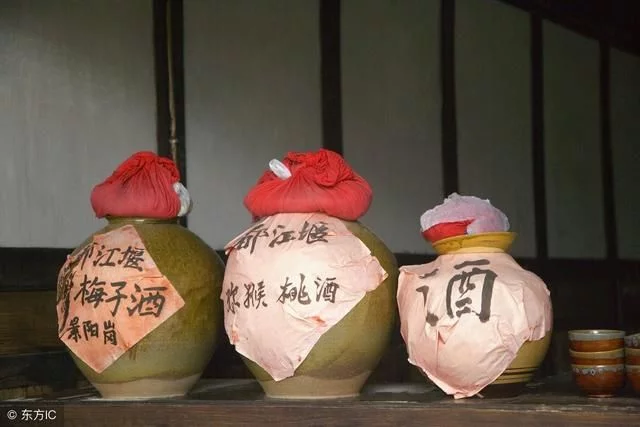 都江堰
梅子酒
景阳岗
都江堰
猕猴桃酒
酒
© 东方IC